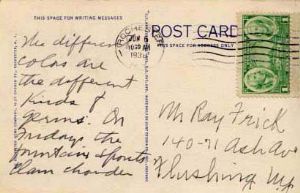 THIS SPACE FOR WRITING MESSAGES
POST CARD
JUN 6
10 AM
193
The different
colos are
the different
kinds of
germs. On
Fridays the
fountain spouts
clam chowder
Mr Ray Frick
140-71 Ash Ave
Flushing NY